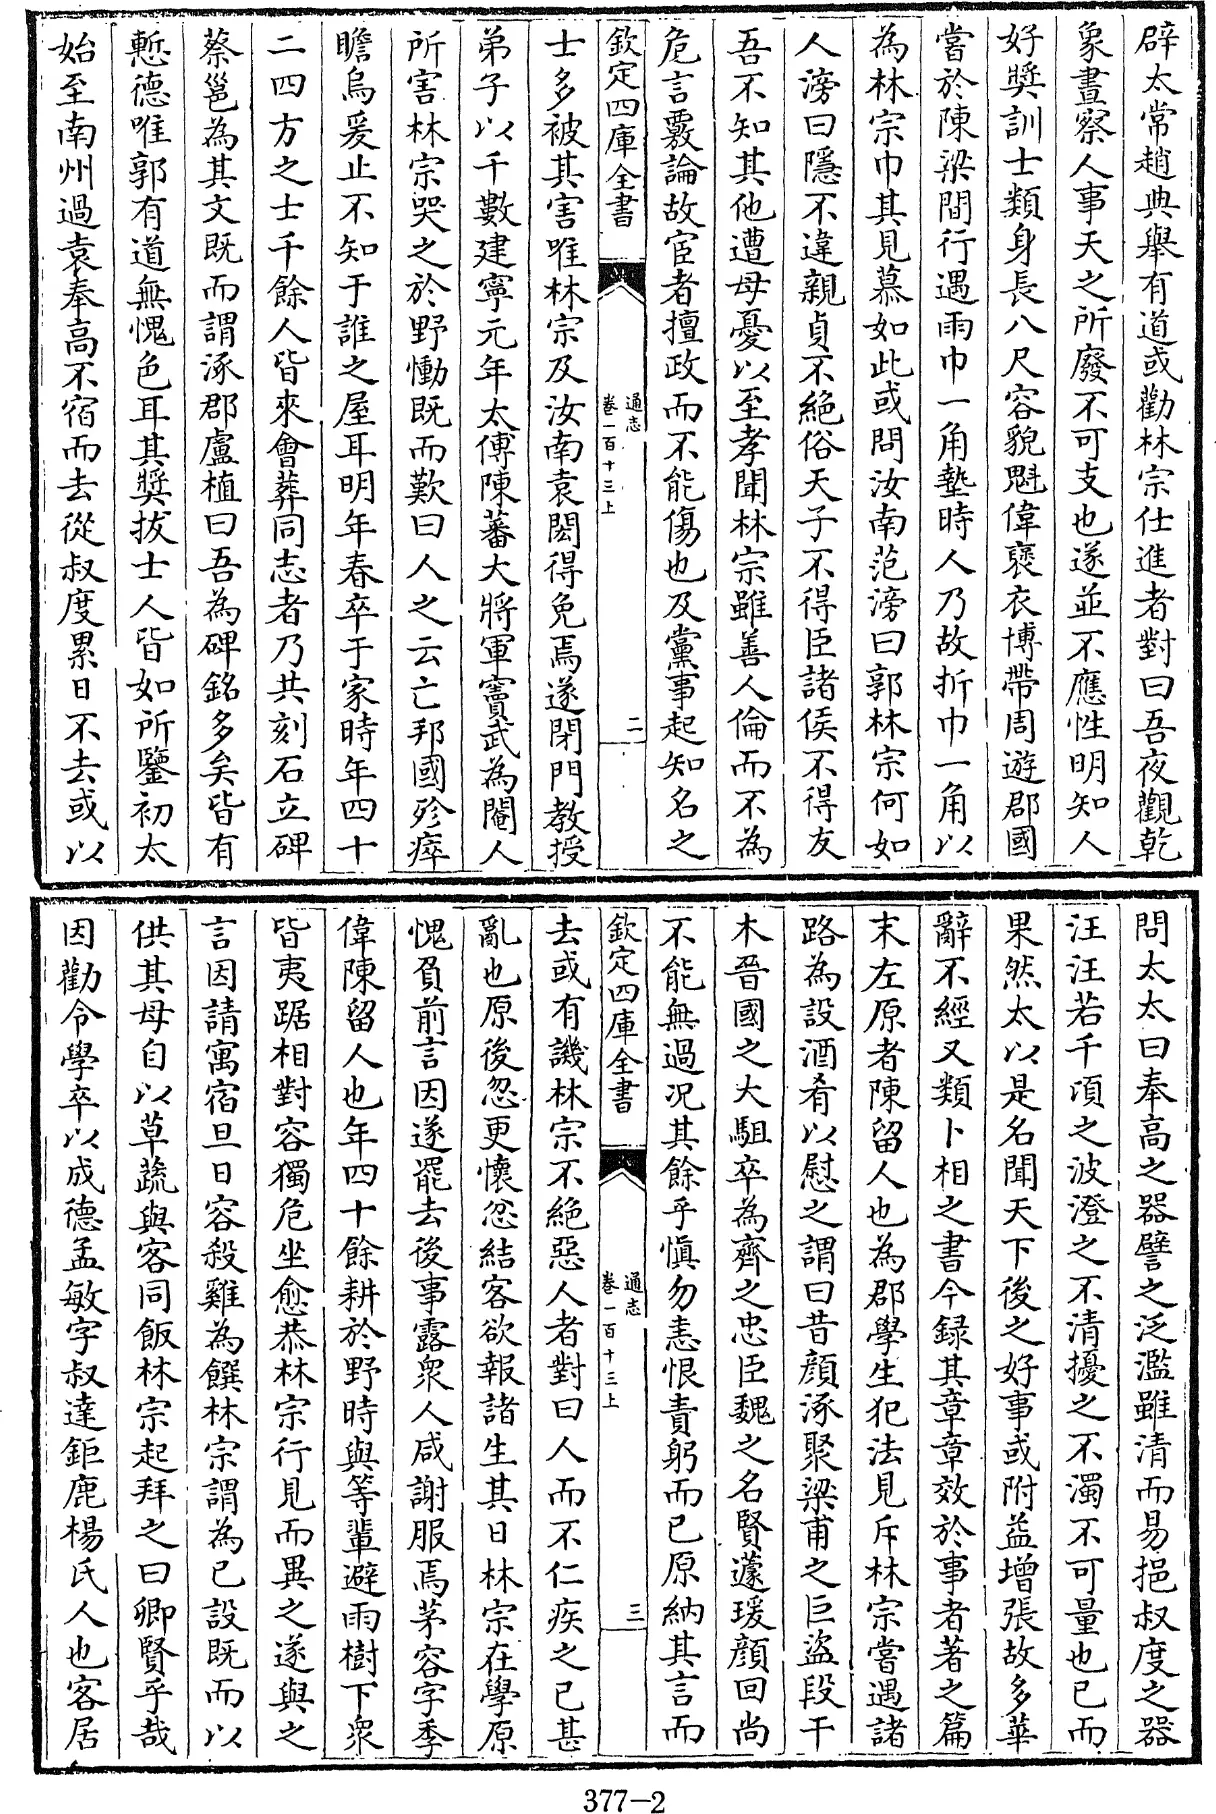 辟太常趙典舉有道或勸林宗仕進者對曰吾夜觀乾
象晝察人事天之所廢不可支也遂並不應性明知人
好奬訓士類身長八尺容貌魁偉褒衣博帶周遊郡國
嘗於陳梁間行遇雨巾一角墊時人乃故折巾一角以
為林宗巾其見慕如此或問汝南范滂曰郭林宗何如
人滂曰隱不違親貞不絶俗天子不得臣諸侯不得友
吾不知其他遭母憂以至孝聞林宗雖善人倫而不為
危言覈論故宦者擅政而不能傷也及黨事起知名之
欽定四庫全書
通志
卷一百十三上
二
士多被其害唯林宗及汝南袁閎得免焉遂閉門教授
弟子以千數建寧元年太傅陳蕃大將軍竇武為閹人
所害林宗哭之於野慟既而歎曰人之云亡邦國殄瘁
瞻烏爰止不知于誰之屋耳明年春卒于家時年四十
二四方之士千餘人皆來會葬同志者乃共刻石立碑
蔡邕為其文既而謂涿郡盧植曰吾為碑銘多矣皆有
慙德唯郭有道無愧色耳其奬拔士人皆如所鑒初太
始至南州過袁奉高不宿而去從叔度累日不去或以
問太太曰奉高之器譬之泛濫雖清而易挹叔度之器
汪汪若千頃之波澄之不清擾之不濁不可量也已而
果然太以是名聞天下後之好事或附益增張故多華
辭不經又類卜相之書今録其章章效於事者著之篇
末左原者陳留人也為郡學生犯法見斥林宗嘗遇諸
路為設酒肴以慰之謂曰昔顔涿聚梁甫之巨盜段干
木晉國之大駔卒為齊之忠臣魏之名賢蘧瑗顔回尚
不能無過况其餘乎愼勿恚恨責躬而已原納其言而
欽定四庫全書
通志
卷一百十三上
三
去或有譏林宗不絶惡人者對曰人而不仁疾之已甚
亂也原後忽更懷忿結客欲報諸生其日林宗在學原
愧負前言因遂罷去後事露衆人咸謝服焉茅容字季
偉陳留人也年四十餘耕於野時與等輩避雨樹下衆
皆夷踞相對容獨危坐愈恭林宗行見而異之遂與之
言因請寓宿旦日容殺雞為饌林宗謂為已設既而以
供其母自以草蔬與客同飯林宗起拜之曰卿賢乎哉
因勸令學卒以成德孟敏字叔達鉅鹿楊氏人也客居
377-2